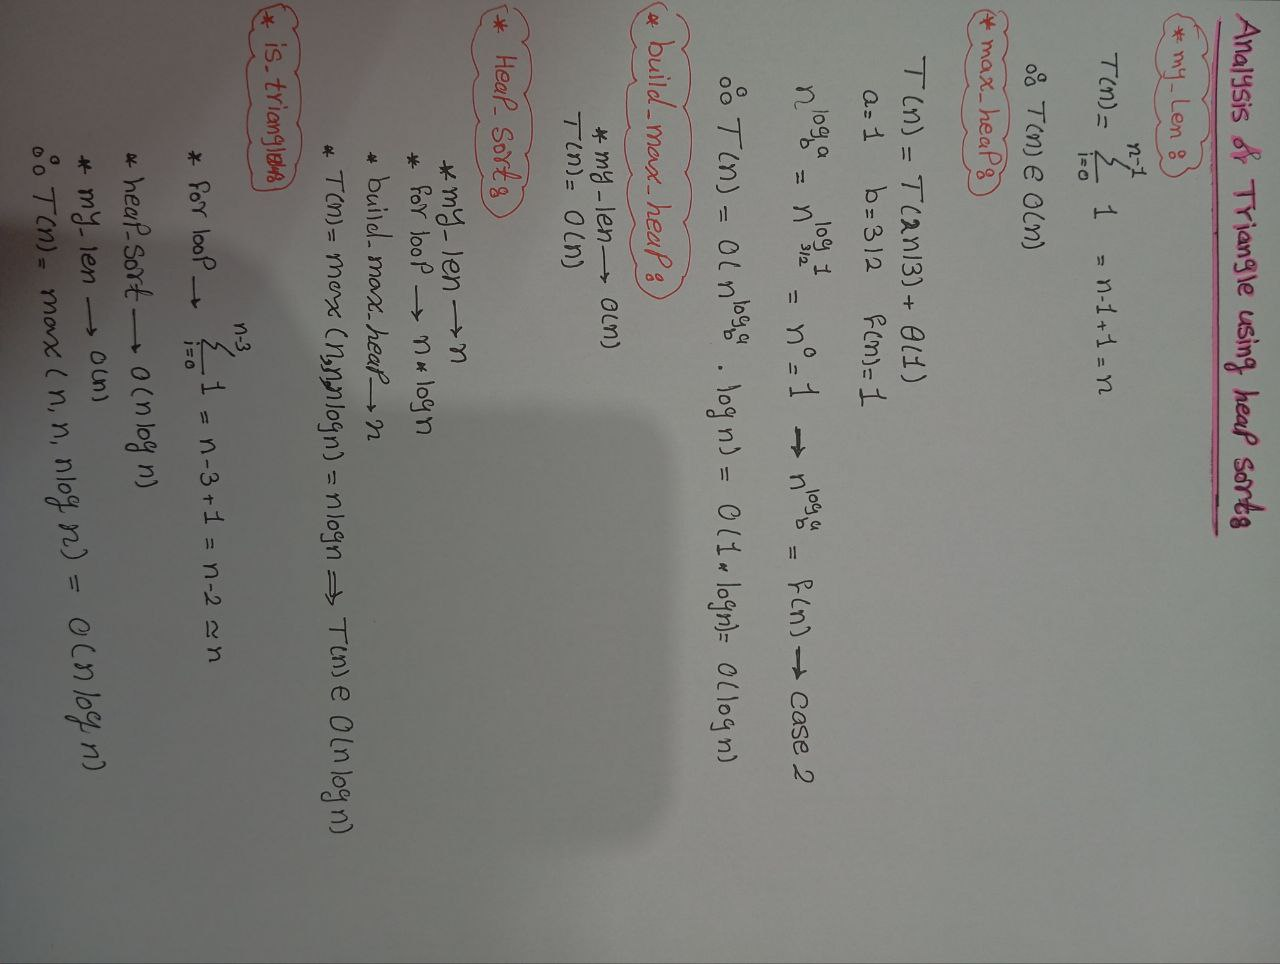 Analysis of Triangle using heap sort:
* my_len:
T(n) = n-1 Σ i=0 1 = n-1+1 = n
∴ T(n) ∈ O(n)
* max_heap:
T(n) = T(2n/3) + θ(1)
a=1 b=3/2 f(n)=1
n^log_b a = n^log_3/2 1 = n^0 = 1 → n^log_b a = f(n) → case 2
∴ T(n) = O(n^log_b a . log n) = O(1 * log n) = O(log n)
* build_max_heap:
* my-len → O(n)
T(n) = O(n)
* Heap_Sort:
* my-len → n
* for loop → n * log n
* build_max_heap → n
* T(n) = max(n,n,nlogn) = nlogn ⇒ T(n) ∈ O(n log n)
* is_triangle:
* for loop → n-3 Σ i=0 1 = n-3+1 = n-2 ≃ n
* heap-sort → O(n log n)
* my-len → O(n)
∴ T(n) = max(n, n, nlog n) = O(n log n)